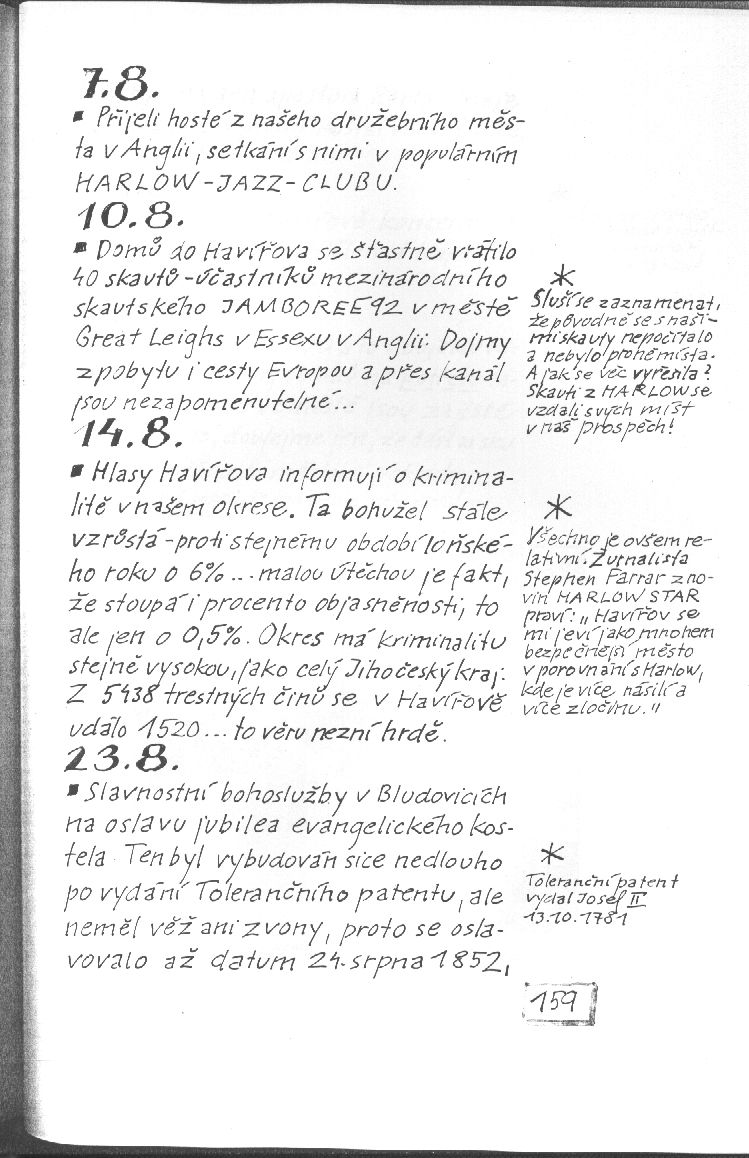 7.8.
▪ Přijeli hosté z našeho družebního měs-
ta v Anglii, setkání s nimi v populárním
HARLOW-JAZZ-CLUBU.
10.8.
▪ Domů do Havířova se šťastně vrátilo
40 skautů - účastníků mezinárodního
skautského JAMBOREE 92 v městě
Great Leighs v Essexu v Anglii. Dojmy
z pobytu i cesty Evropou a přes kanál
jsou nezapomenutelné...
14.8.
▪ Hlasy Havířova informují o krimina-
litě v našem okrese. Ta bohužel stále
vzrůstá - proti stejnému období loňské-
ho roku o 6% ... malou útěchou je fakt,
že stoupá i procento objasněnosti, to
ale jen o 0,5%. Okres má kriminalitu
stejně vysokou, jako celý Jihočeský kraj.
Z 5438 trestných činů se v Havířově
událo 1520... to věru nezní hrdě.
23.8.
▪ Slavnostní bohoslužby v Bludovicích
na oslavu jubilea evangelického kos-
tela. Ten byl vybudován sice nedlouho
po vydání Tolerančního patentu, ale
neměl věž ani zvony, proto se osla-
vovalo až datum 24. srpna 1852,
*
Sluší se zaznamenat,
že původně se s naši-
mi skauty nepočítalo
a nebylo pro ně místa.
A jak se věc vyřešila?
Skauti z HARLOW se
vzdali svých míst
v náš prospěch!
*
Všechno je ovšem re-
lativní. Žurnalista
Stephen Farrar z no-
vin HARLOW STAR
praví: „Havířov se
mi jeví jako mnohem
bezpečnější město
v porovnání s Harlow,
kde je více násilí a
více zločinu."
*
Toleranční patent
vydal Josef II
13.10.1781
159